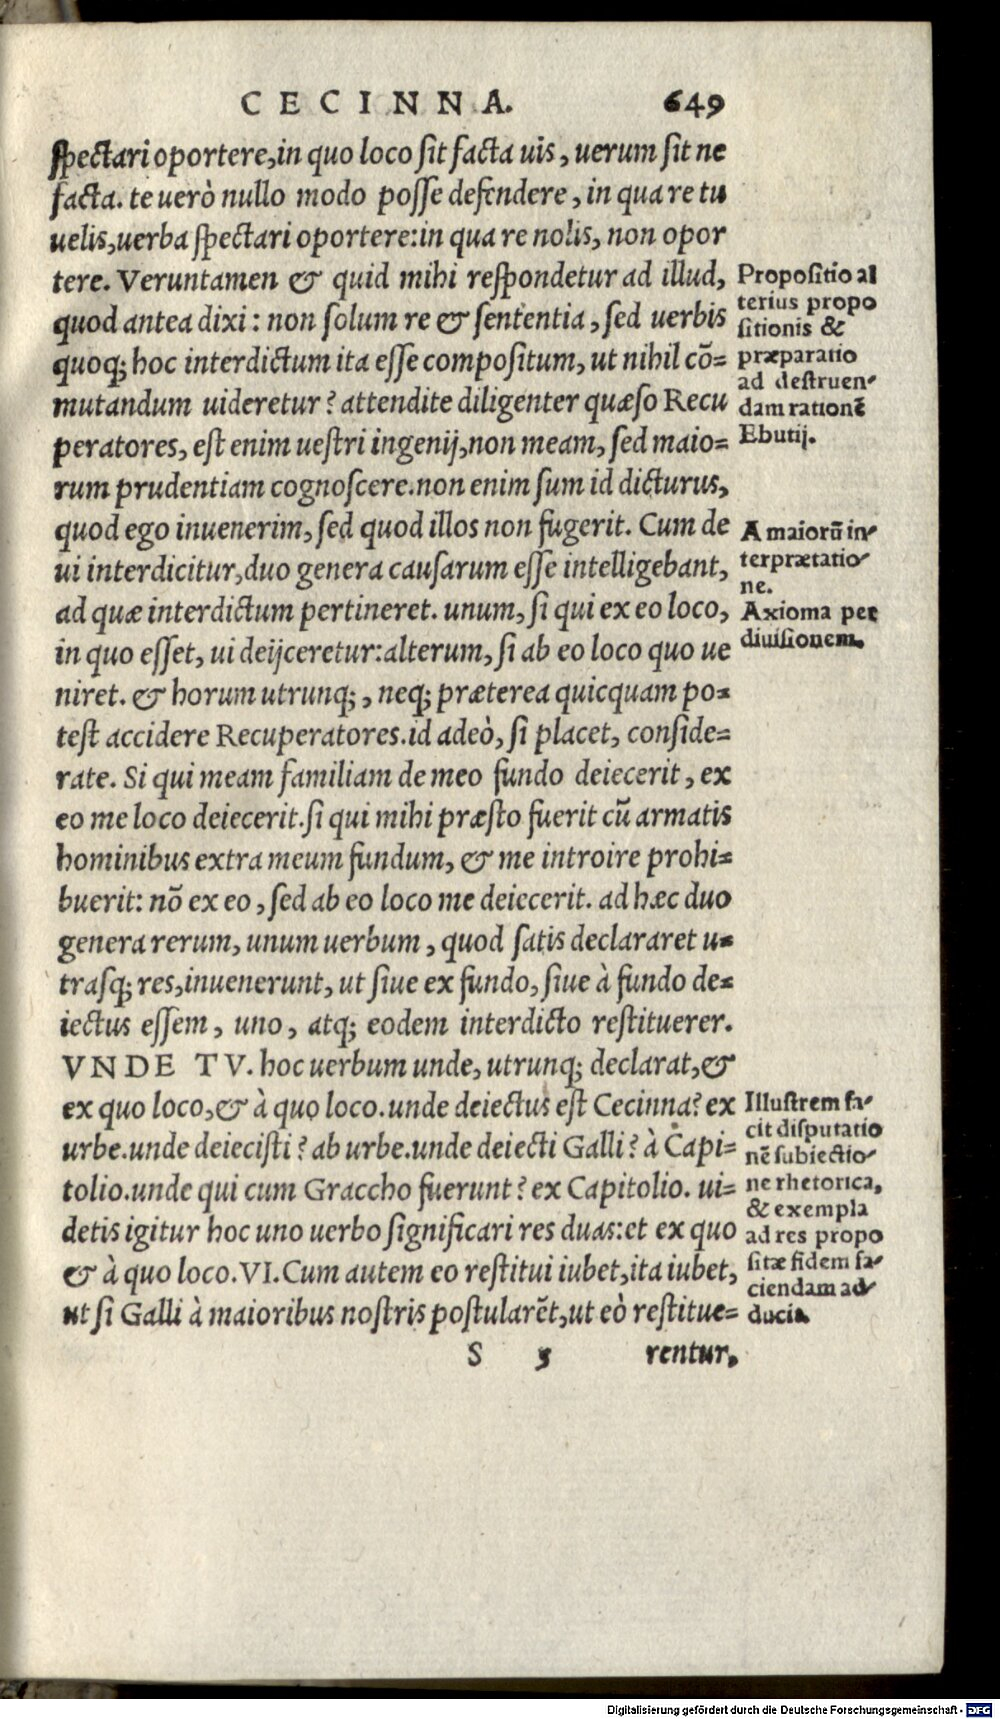 CECINNA. 649
spectari oportere,in quo loco sit facta uis, uerum sit ne
facta. te uerò nullo modo posse defendere, in qua re tu
uelis,uerba spectari oportere:in qua re nolis, non opor
tere. Veruntamen & quid mihi respondetur ad illud,
quod antea dixi: non solum re & sententia, sed uerbis
quoq; hoc interdictum ita esse compositum, ut nihil cō=
mutandum uideretur? attendite diligenter quæso Recu
peratores, est enim uestri ingenij,non meam, sed maio=
rum prudentiam cognoscere.non enim sum id dicturus,
quod ego inuenerim, sed quod illos non fugerit. Cum de
ui interdicitur,duo genera causarum esse intelligebant,
ad quæ interdictum pertineret. unum, si qui ex eo loco,
in quo esset, ui deijceretur:alterum, si ab eo loco quo ue
niret. & horum utrunq;, neq; præterea quicquam po=
test accidere Recuperatores.id adeò, si placet, conside=
rate. Si qui meam familiam de meo fundo deiecerit, ex
eo me loco deiecerit.si qui mihi præsto fuerit cū armatis
hominibus extra meum fundum, & me introire prohi=
buerit: nō ex eo, sed ab eo loco me deiecerit. ad hæc duo
genera rerum, unum uerbum, quod satis declararet u=
trasq; res,inuenerunt, ut siue ex fundo, siue à fundo de=
iectus essem, uno, atq; eodem interdicto restituerer.
VNDE TV. hoc uerbum unde, utrunq; declarat,&
ex quo loco,& à quo loco.unde deiectus est Cecinna? ex
urbe.unde deiecisti? ab urbe.unde deiecti Galli? à Capi=
tolio.unde qui cum Graccho fuerunt? ex Capitolio. ui=
detis igitur hoc uno uerbo significari res duas:et ex quo
& à quo loco.VI.Cum autem eo restitui iubet,ita iubet,
ut si Galli à maioribus nostris postularēt,ut eò restitue=
S 5 rentur,
Propositio al
terius propo
sitionis &
præparatio
ad destruen-
dam rationē
Ebutij.
A maiorū in-
terprætatio-
ne.
Axioma per
diuisionem.
Illustrem fa-
cit disputatio
nē subiectio-
ne rhetorica,
& exempla
ad res propo
sitæ fidem fa-
ciendam ad-
ducit.
Digitalisierung gefördert durch die Deutsche Forschungsgemeinschaft - DFG